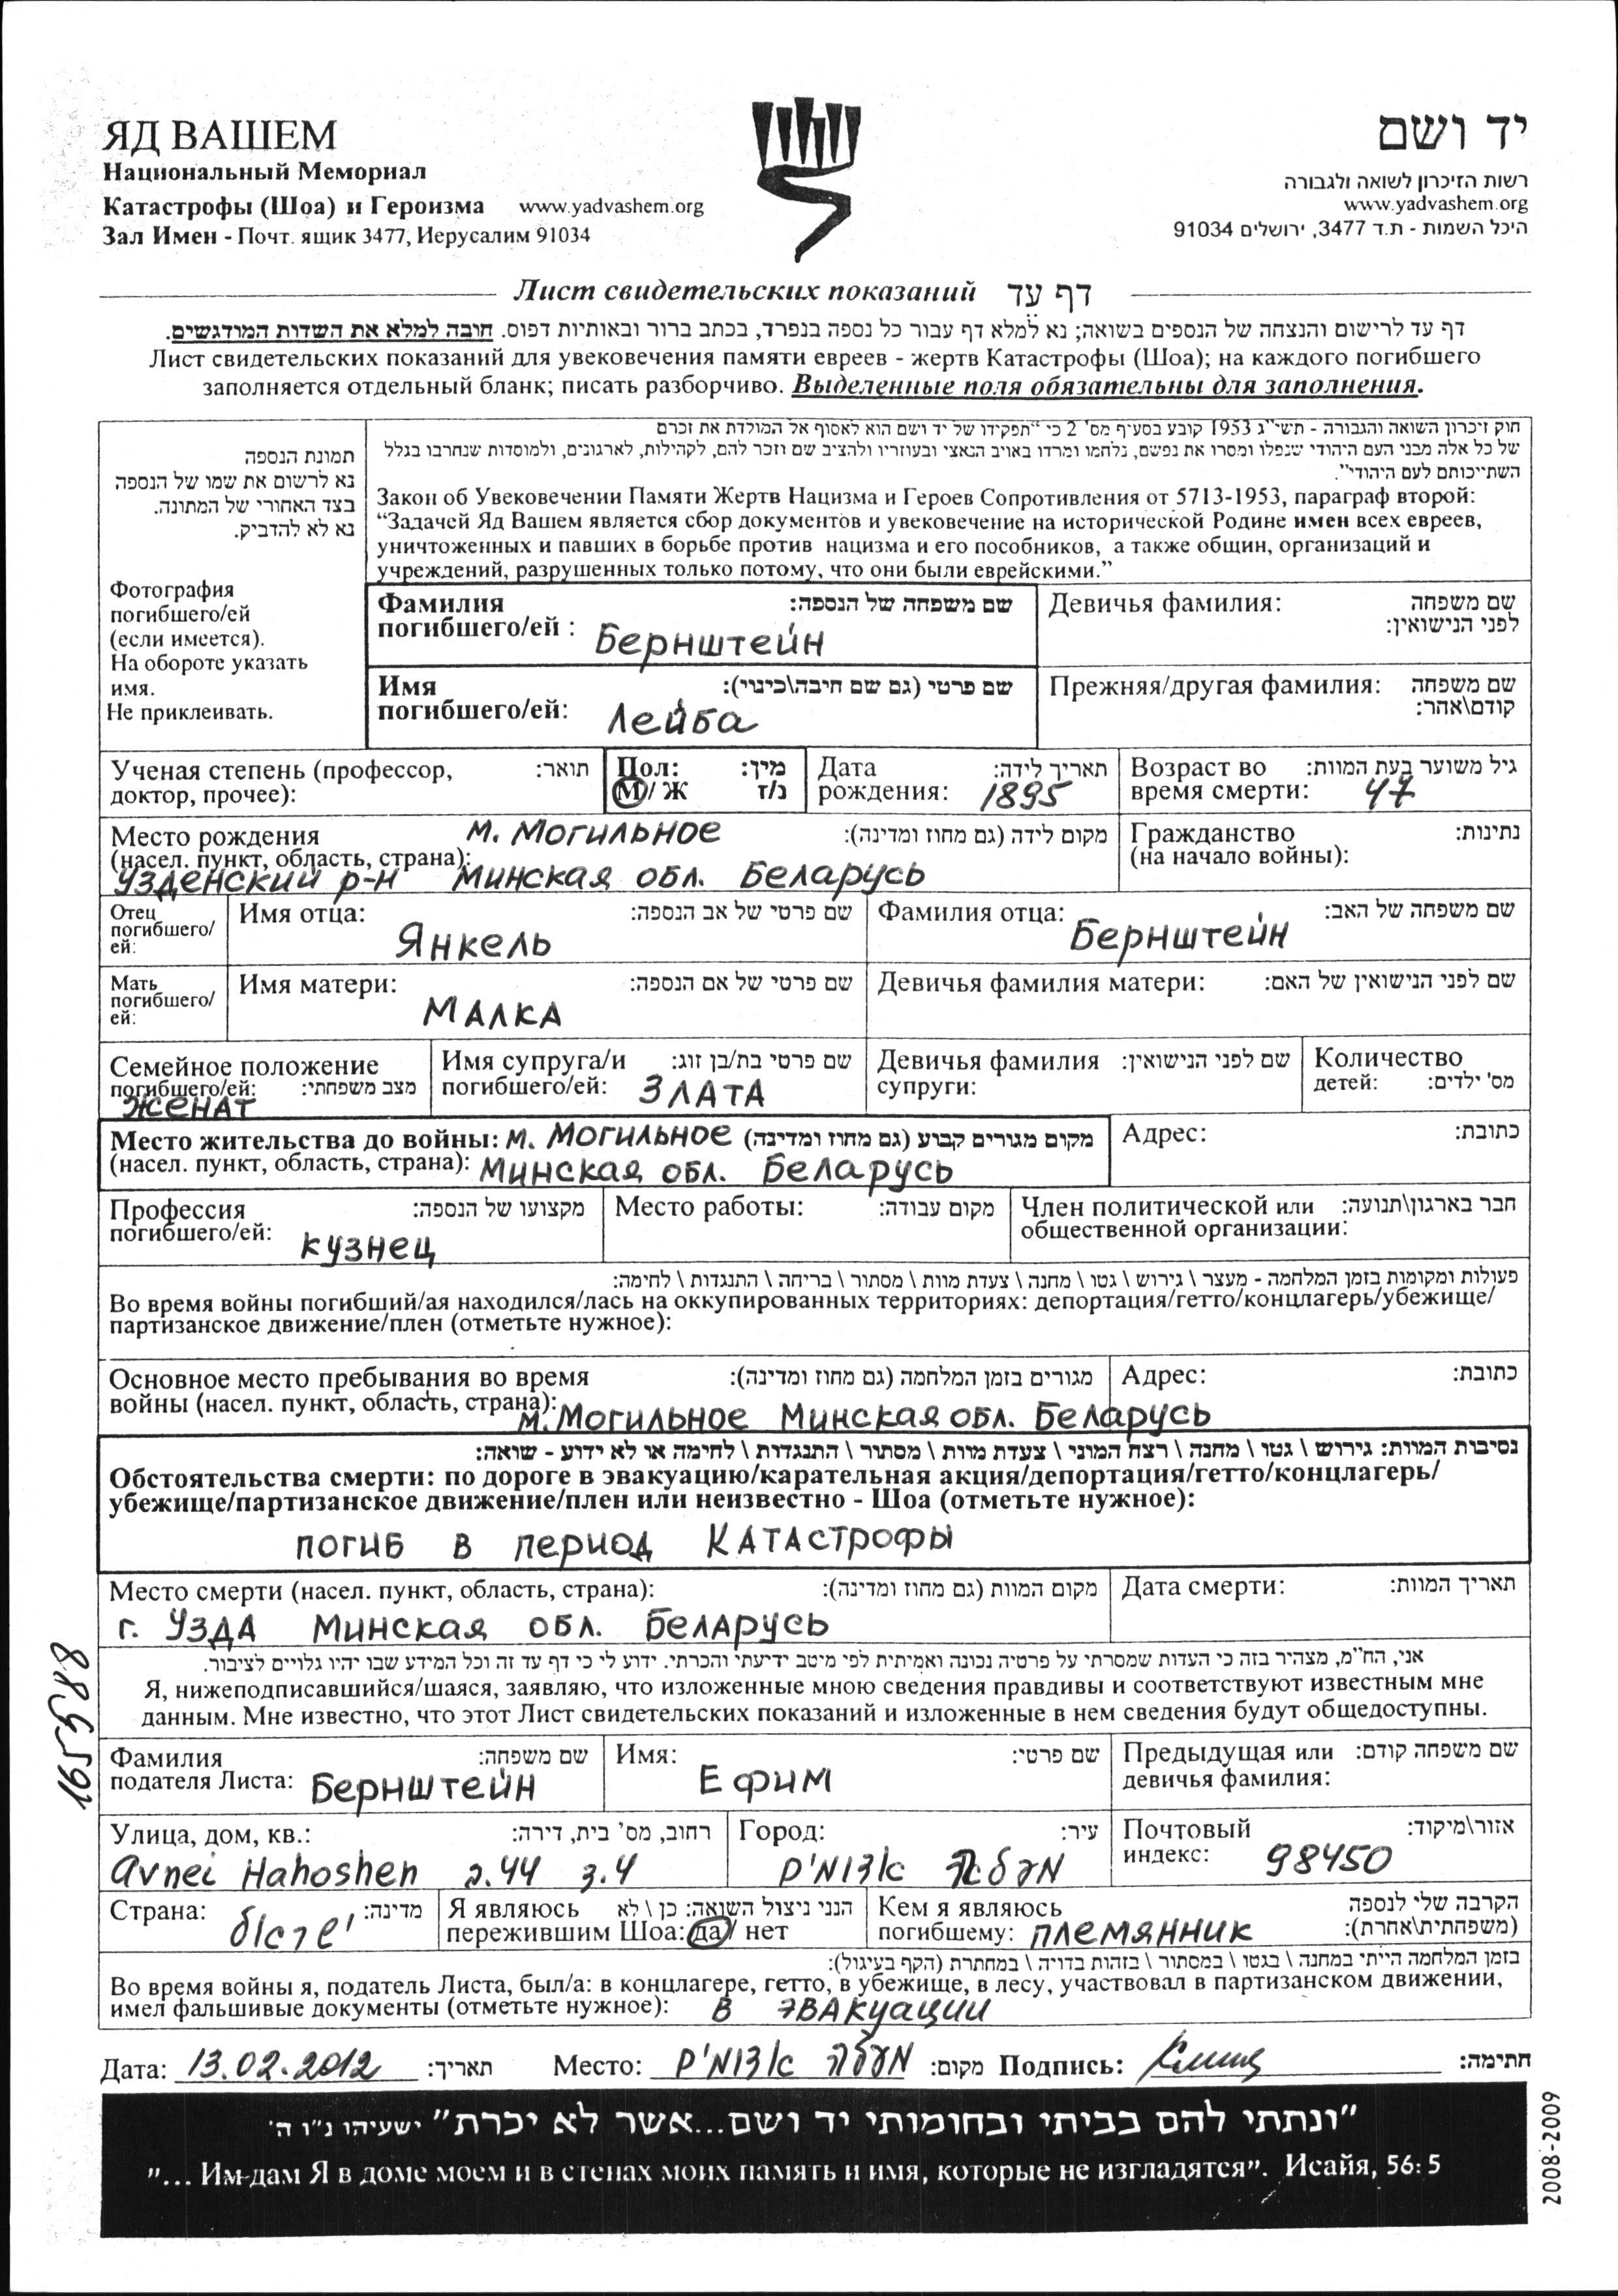 ЯД ВАШЕМ
Национальный Мемориал
Катастрофы (Шоа) и Героизма www.yadvashem.org
Зал Имен - Почт. ящик 3477, Иерусалим 91034
יד ושם
רשות הזיכרון לשואה ולגבורה
www.yadvashem.org
היכל השמות - ת.ד 3477, ירושלים 91034
Лист свидетельских показаний דף עד
דף עד לרישום והנצחה של הנספים בשואה; נא למלא דף עבור כל נספה בנפרד, בכתב ברור ובאותיות דפוס. חובה למלא את השדות המודגשים.
Лист свидетельских показаний для увековечения памяти евреев - жертв Катастрофы (Шоа); на каждого погибшего
заполняется отдельный бланк; писать разборчиво. Выделенные поля обязательны для заполнения.
תמונת הנספה
נא לרשום את שמו של הנספה
בצד האחורי של המתונה.
נא לא להדביק.
Фотография
погибшего/ей
(если имеется).
На обороте указать
имя.
Не приклеивать.
חוק זיכרון השואה והגבורה - תשי"ג 1953 קובע בסעיף מס' 2 כי "תפקידו של יד ושם הוא לאסוף אל המולדת את זכרם
של כל אלה מבני העם היהודי שנפלו ומסרו את נפשם, נלחמו ומרדו באויב הנאצי ובעוזריו ולהציב שם וזכר להם, לקהילות, לארגונים, ולמוסדות שנחרבו בגלל
השתייכותם לעם היהודי".
Закон об Увековечении Памяти Жертв Нацизма и Героев Сопротивления от 5713-1953, параграф второй:
“Задачей Яд Вашем является сбор документов и увековечение на исторической Родине имен всех евреев,
уничтоженных и павших в борьбе против нацизма и его пособников, а также общин, организаций и
учреждений, разрушенных только потому, что они были еврейскими.”
Фамилия שם משפחה של הנספה:
погибшего/ей : Бернштейн
Девичья фамилия: שם משפחה
לפני הנישואין:
Имя שם פרטי (גם שם חיבה\כינוי):
погибшего/ей: Лейба
Прежняя/другая фамилия: שם משפחה
קודם\אחר:
Ученая степень (профессор, תואר:
доктор, прочее):
Пол: מין:
М/ Ж ז/נ
Дата תאריך לידה:
рождения: 1895
Возраст во גיל משוער בעת המוות:
время смерти: 47
Место рождения м. Могильное מקום לידה (גם מחוז ומדינה):
(насел. пункт, область, страна):
Узденский р-н Минская обл. Беларусь
Гражданство נתינות:
(на начало войны):
Отец
погибшего/
ей:
Имя отца: שם פרטי של אב הנספה:
Янкель
Фамилия отца: שם משפחה של האב:
Бернштейн
Мать
погибшего/
ей:
Имя матери: שם פרטי של אם הנספה:
Малка
Девичья фамилия матери: שם לפני הנישואין של האם:
Семейное положение
погибшего/ей: מצב משפחתי:
женат
Имя супруга/и שם פרטי בת/בן זוג:
погибшего/ей: Злата
Девичья фамилия שם לפני הנישואין:
супруги:
Количество
детей: מס' ילדים:
Место жительства до войны: м. Могильное מקום מגורים קבוע (גם מחוז ומדינה)
(насел. пункт, область, страна): Минская обл. Беларусь
Адрес: כתובת:
Профессия מקצועו של הנספה:
погибшего/ей: кузнец
Место работы: מקום עבודה:
Член политической или חבר בארגון\תנועה:
общественной организации:
פעולות ומקומות בזמן המלחמה - מעצר \ גירוש \ גטו \ מחנה \ צעדת מוות \ מסתור \ בריחה \ התנגדות \ לחימה:
Во время войны погибший/ая находился/лась на оккупированных территориях: депортация/гетто/концлагерь/убежище/
партизанское движение/плен (отметьте нужное):
Основное место пребывания во время מגורים בזמן המלחמה (גם מחוז ומדינה):
войны (насел. пункт, область, страна):
м. Могильное Минская обл. Беларусь
Адрес: כתובת:
נסיבות המוות: גירוש \ גטו \ מחנה \ רצח המוני \ צעדת מוות \ מסתור \ התנגדות \ לחימה או לא ידוע - שואה:
Обстоятельства смерти: по дороге в эвакуацию/карательная акция/депортация/гетто/концлагерь/
убежище/партизанское движение/плен или неизвестно - Шоа (отметьте нужное):
погиб в период Катастрофы
Место смерти (насел. пункт, область, страна): מקום המוות (גם מחוז ומדינה):
г. Узда Минская обл. Беларусь
Дата смерти: תאריך המוות:
אני, הח"מ, מצהיר בזה כי העדות שמסרתי על פרטיה נכונה ואמיתית לפי מיטב ידיעתי והכרתי. ידוע לי כי דף עד זה וכל המידע שבו יהיו גלויים לציבור.
Я, нижеподписавшийся/шаяся, заявляю, что изложенные мною сведения правдивы и соответствуют известным мне
данным. Мне известно, что этот Лист свидетельских показаний и изложенные в нем сведения будут общедоступны.
Фамилия שם משפחה:
подателя Листа: Бернштейн
Имя: שם פרטי:
Ефим
Предыдущая или שם משפחה קודם:
девичья фамилия:
Улица, дом, кв.: רחוב, מס' בית, דירה:
Avnei Hahoshen ב.44 ד.4
Город: עיר:
מעלה אדומים
Почтовый אזור\מיקוד:
индекс: 98450
Страна: מדינה:
ישראל
Я являюсь הנני ניצול השואה: כן \ לא
пережившим Шоа: да / нет
Кем я являюсь הקרבה שלי לנספה
погибшему: племянник (משפחתית\אחרת):
בזמן המלחמה הייתי במחנה \ בגטו \ במסתור \ בזהות בדויה \ במחתרת (הקף בעיגול):
Во время войны я, податель Листа, был/а: в концлагере, гетто, в убежище, в лесу, участвовал в партизанском движении,
имел фальшивые документы (отметьте нужное): в эвакуации
Дата: 13.02.2012 תאריך: Место: מעלה אדומים מקום: Подпись: חתימה:
"ונתתי להם בביתי ובחומותי יד ושם...אשר לא יכרת" ישעיהו נ"ו ה'
"... Им-дам Я в доме моем и в стенах моих память и имя, которые не изгладятся". Исайя, 56: 5
165588
2008-2009